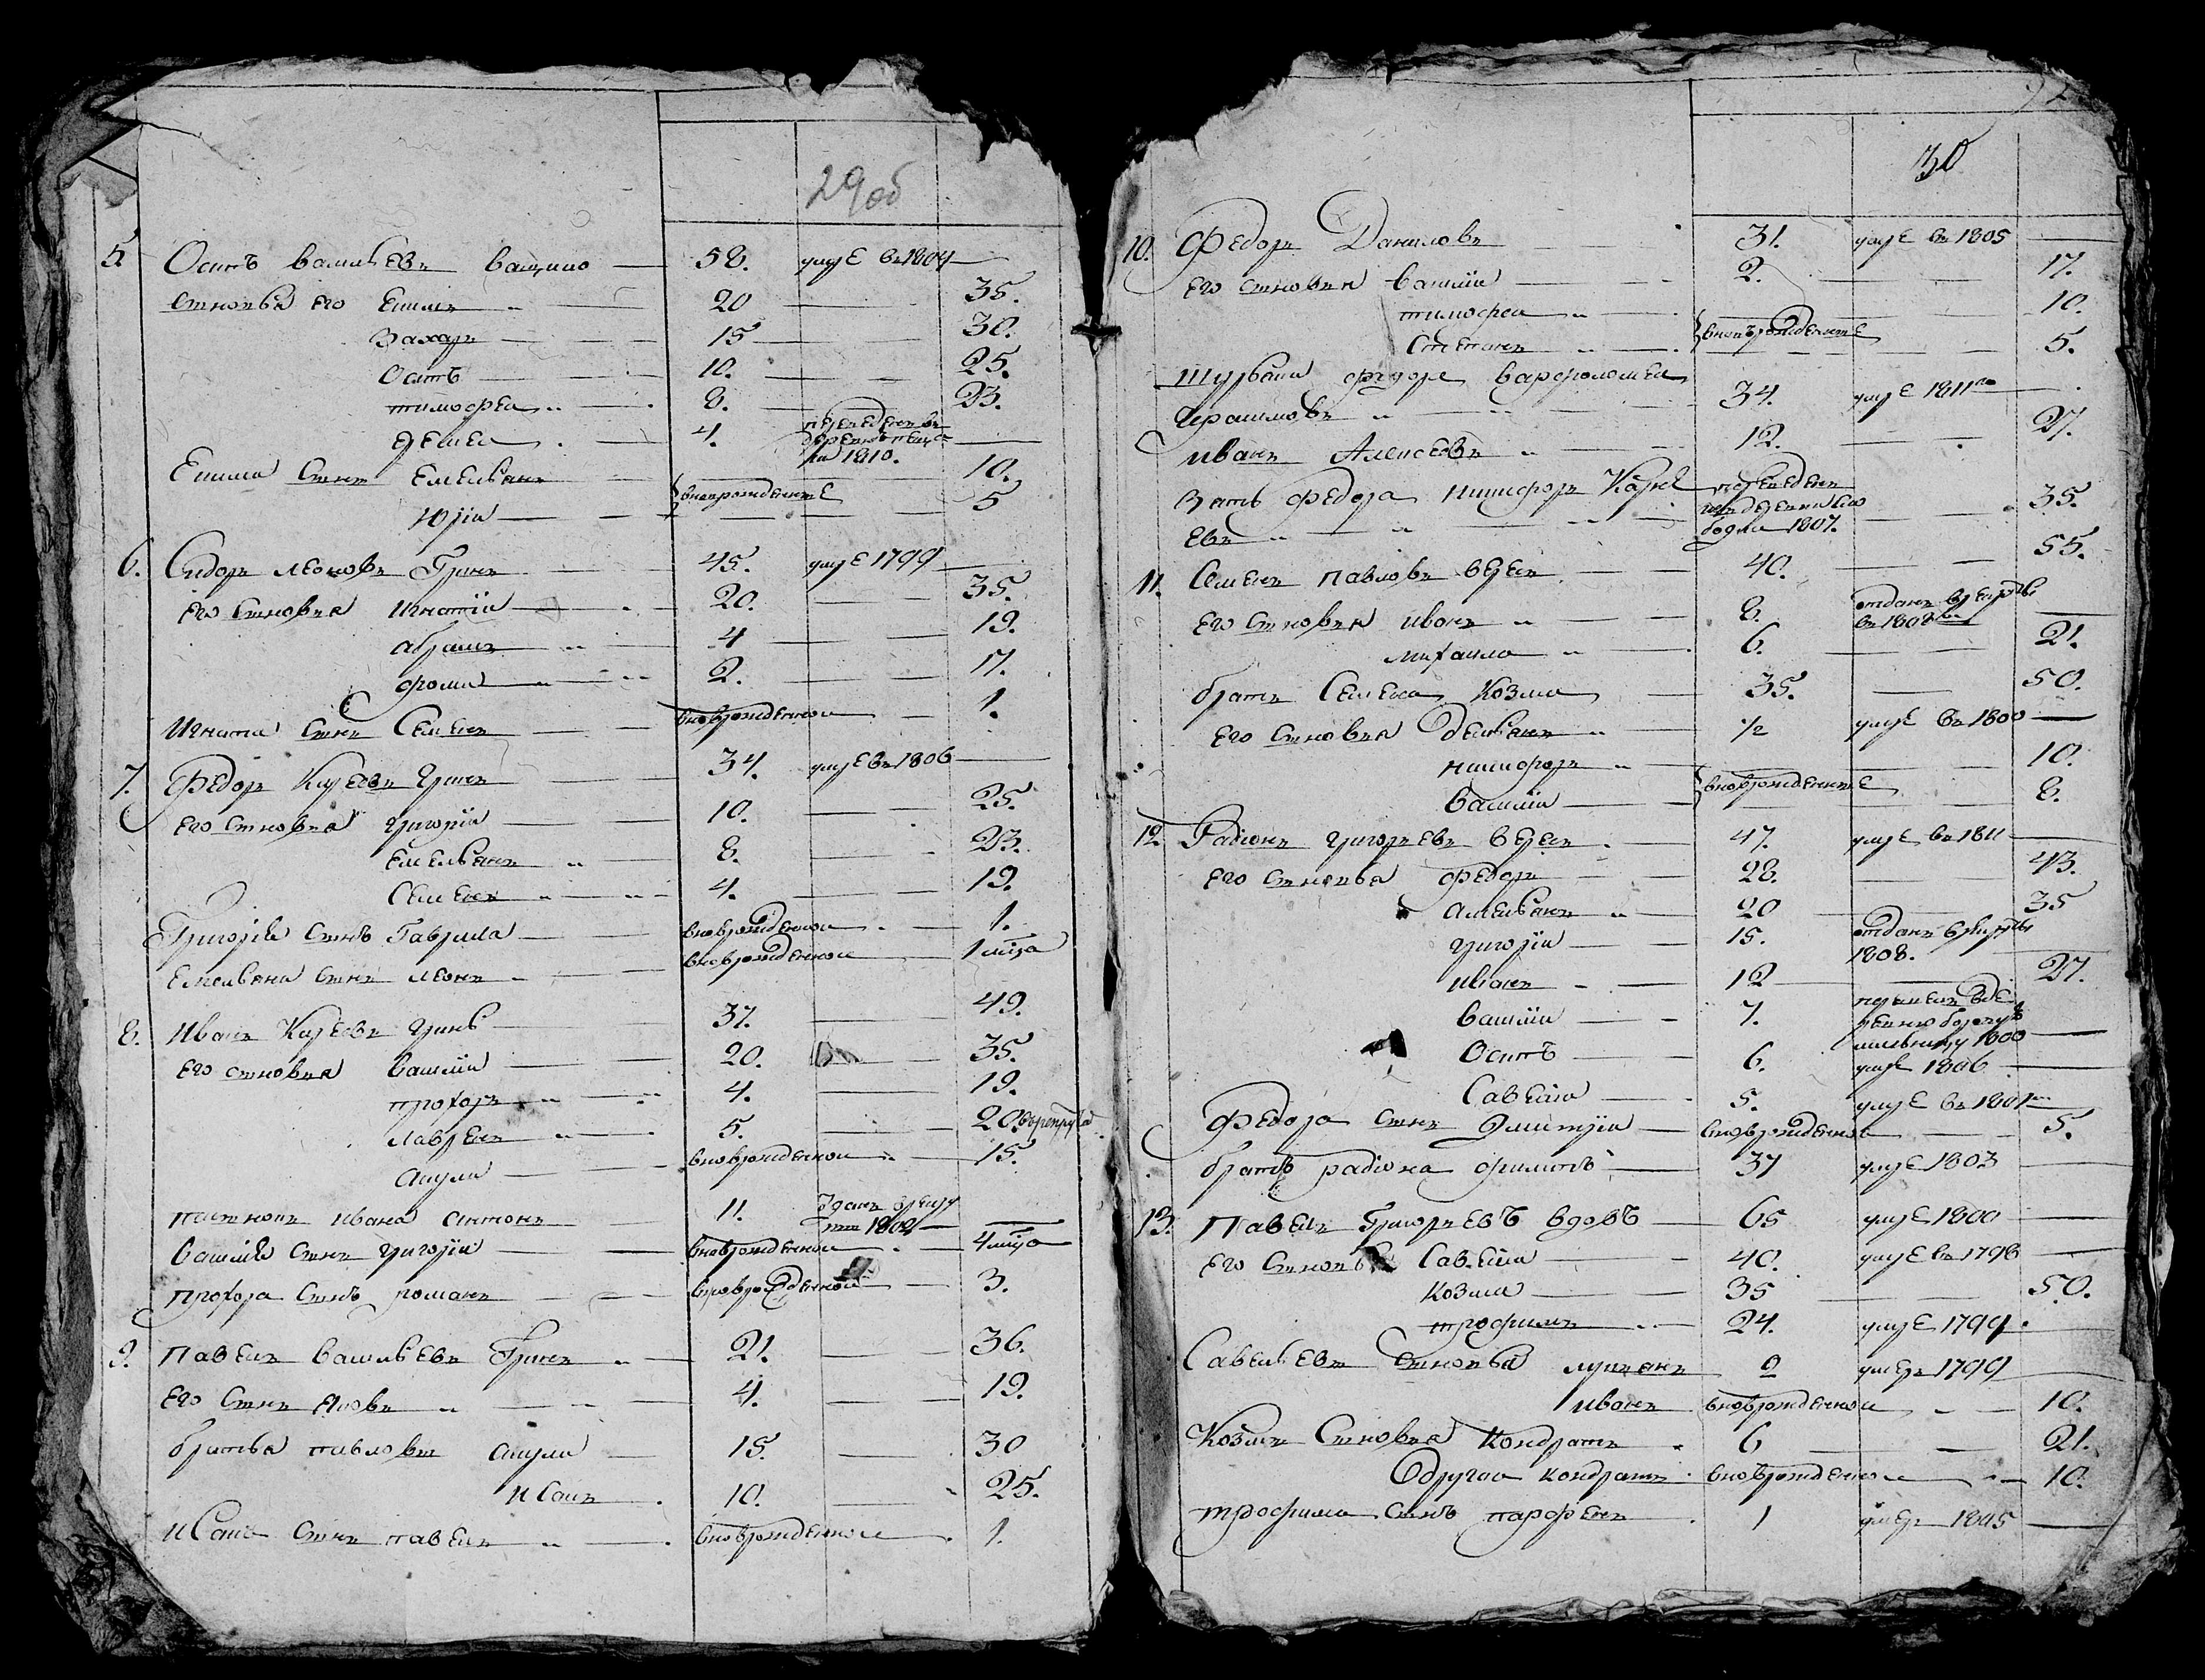 29 об
5. Осипъ Васильевъ Ващило 58. умре въ 1804
сыновья его Еким 20 35.
Захаръ 15 30.
Осипъ 10. 25.
тимофеи 8. 23.
еремеи 4. переведенъ въ
на 1810.
Екима сынъ Емельянъ 10.
Юрiи вновърожденные 5
6. Сидоръ леоновъ Гринъ 45. умре 1799
его сыновья игнатiи 20. 35.
абрамъ 4 19.
фома 2. 17.
Игната сынъ Семенъ вноврожденнои 1.
7. Федоръ Киреевъ Гринъ 34. умре въ 1806
его сыновья григорiи 10. 25.
емельянъ 8. 23.
Семенъ 4. 19.
Григорiя сынъ Гаврила вноврожденнои 1.
Емельяна сынъ леонъ вноврожденнои 1 мца
8. Иванъ Киреевъ гринь 37. 49.
его сыновья василiи 20. 35.
прохоръ 4. 19.
лавренъ 5. 20.
акула вноврожденнои 15.
пасынокъ ивана антонъ 11. 
василiя сынъ григорiи вноврожденнои 4 мца
прохора сынъ романъ вноврожденнои 3.
9. павелъ васильевъ Гринъ 21. 36.
его сынъ яковъ 4. 19.
братья павловы акула 15. 30
исакъ 10. 25.
исака сынъ павелъ вноврожденнои 1.
30
10. Федоръ Даниловъ 31. умре въ 1805
его сыновья василiи 2. 17.
тимофеи 10.
Степанъ вновърожденные 5.
федора варфоломеи
герасимовъ 34. умре 1811го
иванъ Алексеевъ 12. 27.
Зять федора никифоръ Карне переведенъ
евъ 1807. 35.
11. Семенъ павловъ вереи 40. 55.
его сыновья иванъ 8. отданъ врекруты
въ 1808
михаила 6. 21.
братъ Семена Козма 35. 50.
его сыновья демьянъ 1/2 умре въ 1800
никифоръ 10.
василiи вноврожденные 8.
12. Радiонъ григорьевъ вереи 47. умре въ 1811
его сыновья федоръ 28. 43.
амельянъ 20 35
григорiи 15. отданъ врекруты
1808.
иванъ 12 27.
василiи 7. 
1800
Осипъ 6. умре 1806
Савелiи 5. умре въ 1801м
федора сынъ дмитрiи вноврожденнои 5.
братъ радiона филипъ 37 умре 1803
13. павелъ Григорьевъ вдовъ 65 умре 1800
его сыновья Савелiи 40. умре въ 1798
козма 35 50.
трофимъ 24. умре 1799
Савельевы сыновья лукьянъ 2 умеръ 1799
иванъ вноврожденнои 10.
Козмы Сыновья Кондратъ 6 21.
другои кондратъ вноврожденнои 10.
трофима сынъ парфенъ 1 умеръ 1805